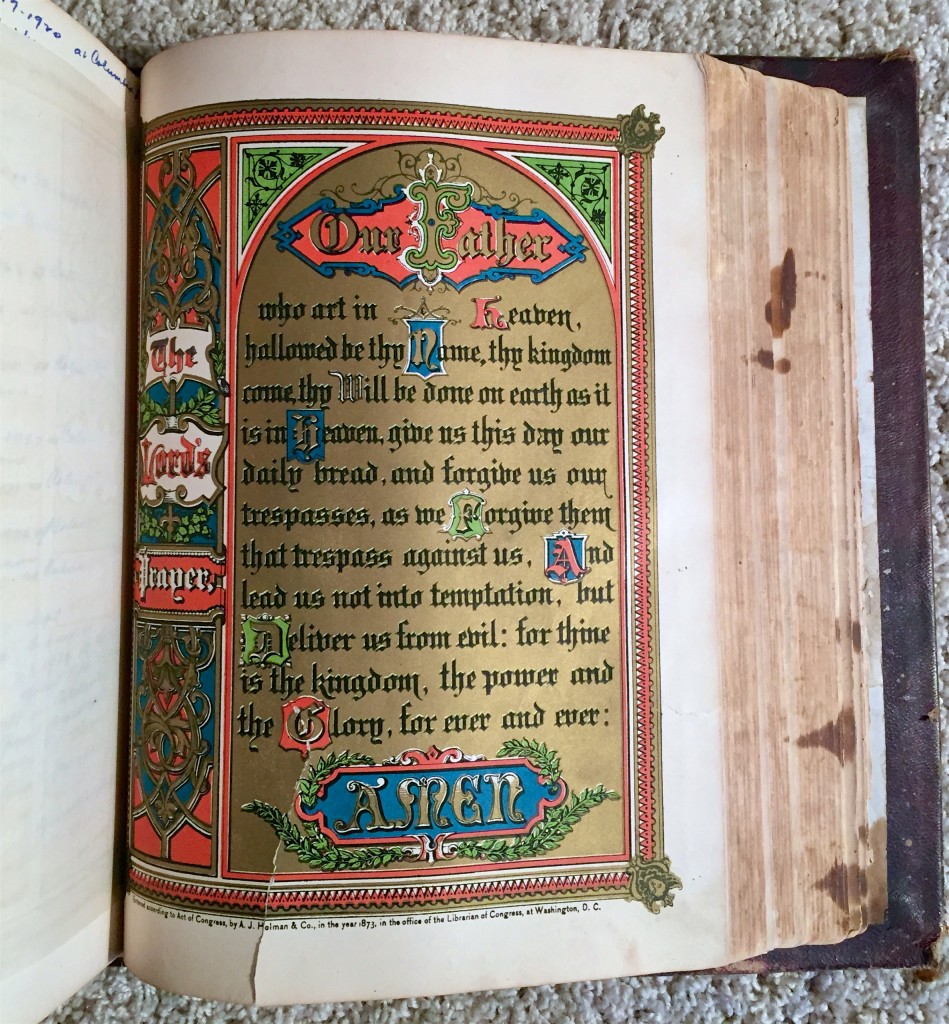 -1920
at
The
Lord's
Prayer,
Our Father
who art in Heaven,
hallowed be thy Name, thy kingdom
come, thy Will be done on earth as it
is in Heaven, give us this day our
daily bread, and forgive us our
trespasses, as we Forgive them
that trespass against us, And
lead us not into temptation, but
Deliver us from evil: for thine
is the kingdom, the power and
the Glory, for ever and ever:
AMEN
Entered according to Act of Congress, by A. J. Holman & Co., in the year 1873, in the office of the Librarian of Congress, at Washington, D. C.